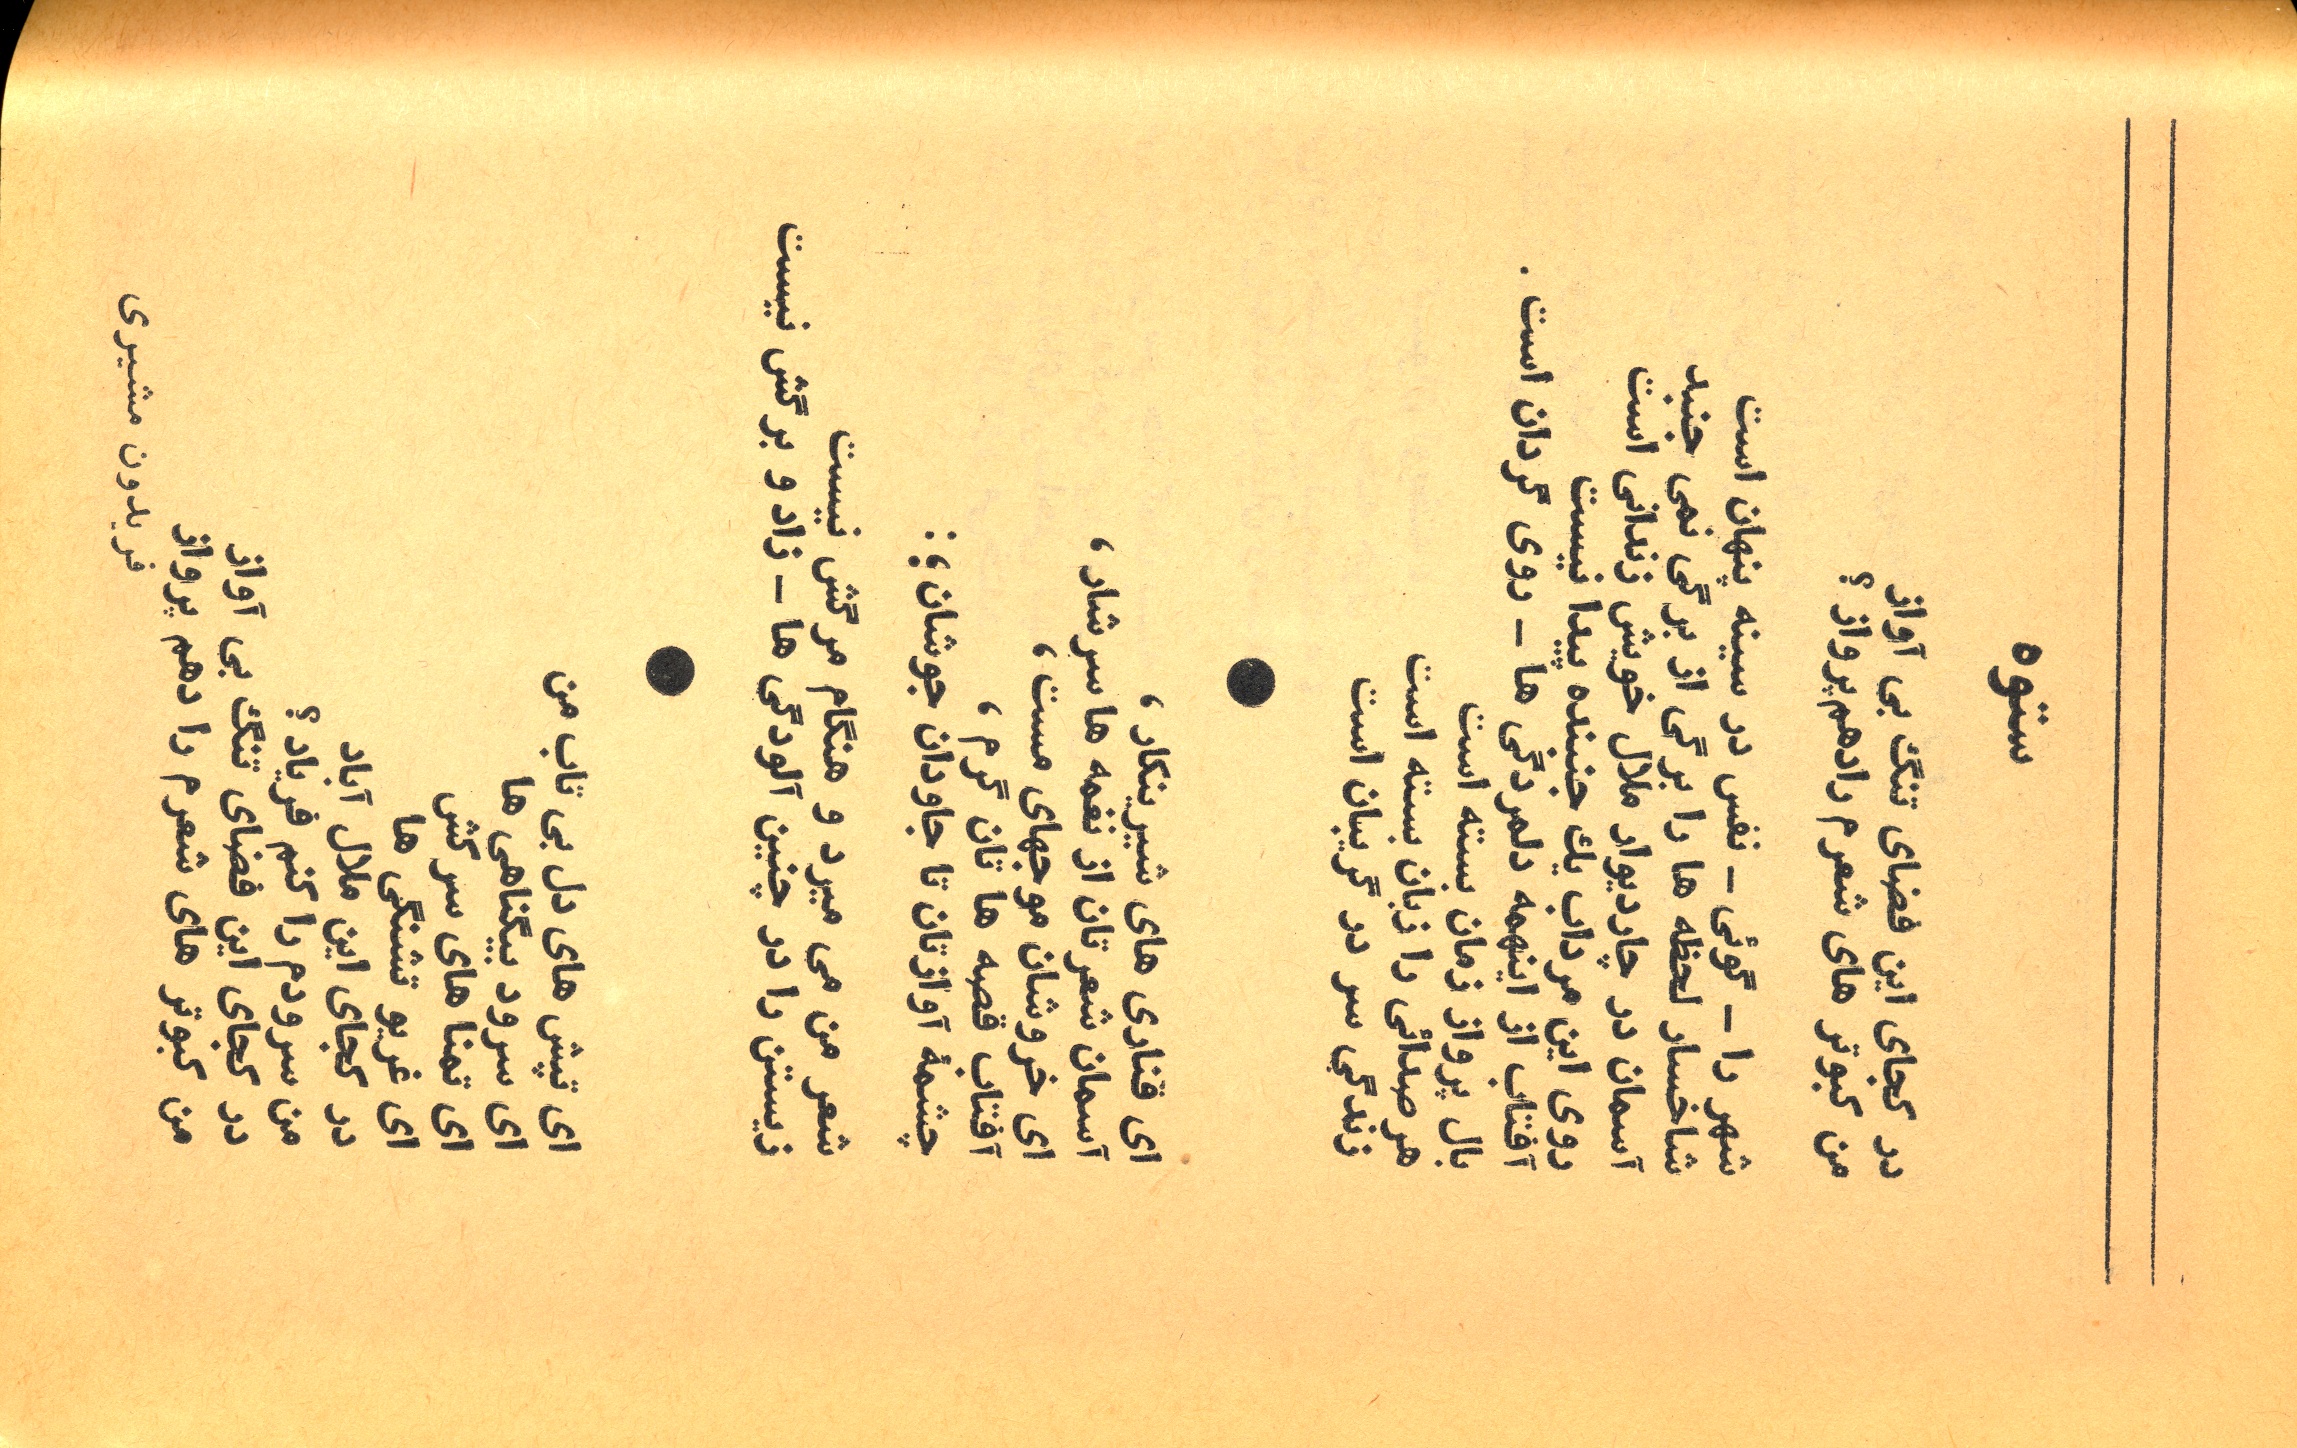 ستوه
در کجای این فضای تنگ بی آواز
من کبوتر های شعرم رادهم پرواز ؟
شهر را – گوئی – نفس در سینه پنهان است
شاخسار لحظه ها را برگی از برگی نمی جنبد
آسمان در چاردیوار ملال خویش زندانی است
روی این مرداب یك جنبنده پیدا نیست
آفتاب از اینهمه دلمردگی ها – روی گردان است .
بال پرواز زمان بسته است
هر صدائی را زبان بسته است
زندگی سر در گریبان است
ای قناری های شیرینکار ،
آسمان شعرتان از نغمه ها سرشار ،
ای خروشان موجهای مست ،
آفتاب قصه ها تان گرم ،
چشمهٔ آوازتان تا جاودان جوشان ؛ :
شعر من می میرد و هنگام مرگش نیست
زیستن را در چنین آلودگی ها – زاد و برگش نیست
ای تپش های دل بی تاب من
ای سرود بیگناهی ها
ای تمنا های سرکش
ای غریو تشنگی ها
در کجای این ملال آباد
من سرودم را کنم فریاد ؟
در کجای این فضای تنگ بی آواز
من کبوتر های شعرم را دهم پرواز
فریدون مشیری